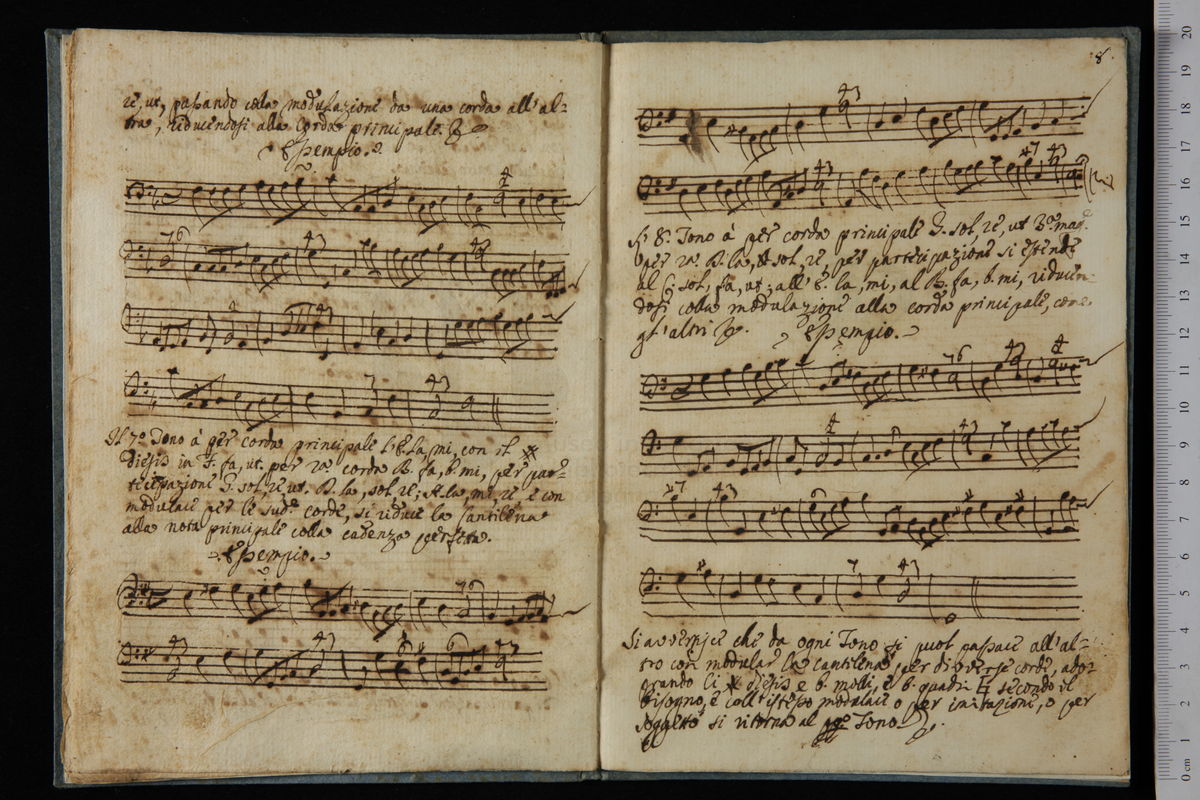 re, ut, passando colla modulazione da una corda all'al=
tra, riducendosi alla Corda principale.
Essempio.
4
7 6
4 3
4 3
7
4 3
Il 7º Tono à per corda principale l'E. la, mi, con il #
diesis in F. fa, ut. per 2ª corda B. fa, b. mi, per par=
tecipazione G. sol, re, ut. D. la, sol, re; A. la, mi, re, e con
modulare per le sud.e corde, si riduce la Cantilena
alla nota principale colla cadenza perfetta.
Essempio.
7 6
4 3
4 3
6
4 3
8.
4 3
4 3
7
4 3
Il 8º Tono à per corda principale G. sol, re, ut 3ª mag.e
per 2ª D. la, sol, re, per partecipazione si estende
al C. sol, fa, ut; all'E. la, mi, al B. fa, b. mi, riducen=
dosi colla modulazione alla corda principale, come
gl'altri
Essempio.
7 6
4 3
4
4
4 3
7
4 3
7
4 3
Si avvertisce che da ogni Tono si puol passare all'al=
tro con modular la cantilena per diverse corde, ado=
prando li # diesis e b. molli, e b. quadri ♮ secondo il
bisogno, e coll'istesso modulare o per imitazione, o per
soggetto si ritorna al Tono.
20
19
18
17
16
15
14
13
12
11
10
9
8
7
6
5
4
3
2
1
0 cm